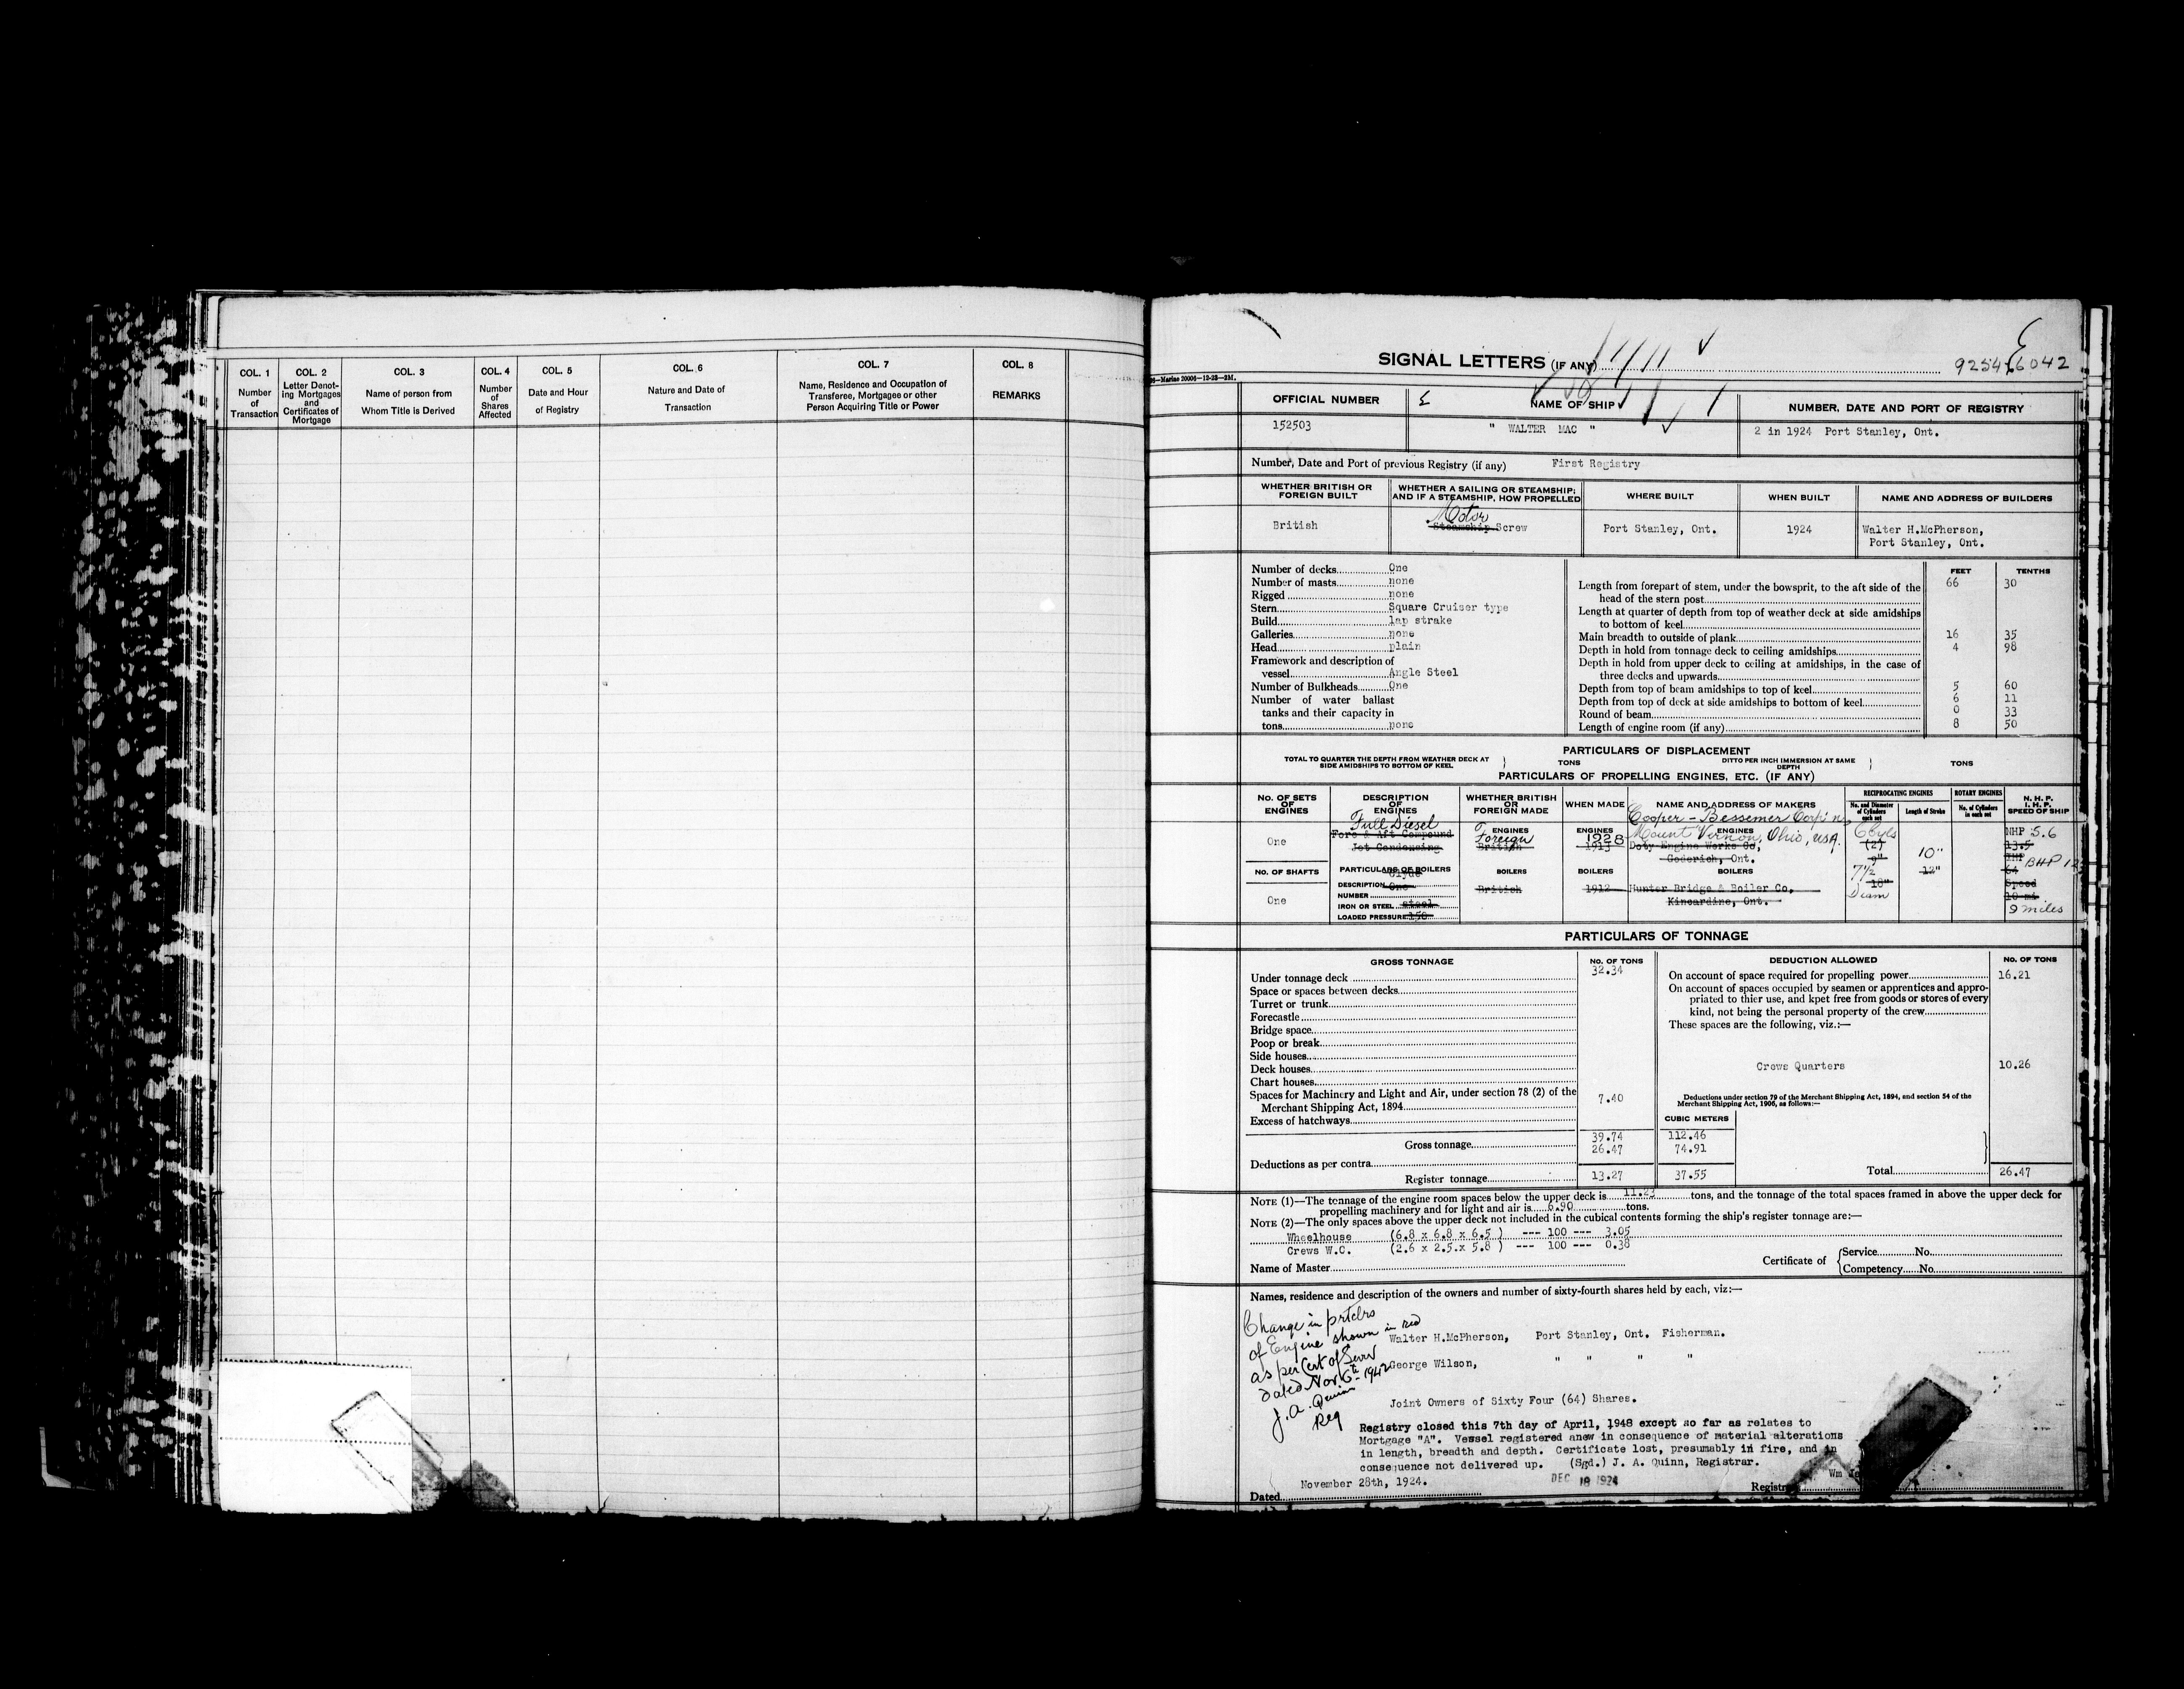 COL. 1 COL. 2 COL. 3 COL. 4 COL. 5 COL. 6 COL. 7 COL. 8
Number of Transaction
Letter Denoting Mortgages and Certificates of Mortgage
Name of person from Whom Title is Derived
Number of Shares Affected
Date and Hour of Registry
Nature and Date of Transaction
Name, Residence and Occupation of Transferee, Mortgagee or other Person Acquiring Title or Power
REMARKS
SIGNAL LETTERS (IF ANY)
OFFICIAL NUMBER NAME OF SHIP NUMBER, DATE AND PORT OF REGISTRY
152503 " WALTER MAC " 2 in 1924 Port Stanley, Ont.
Number, Date and Port of previous Registry (if any) First Registry
WHETHER BRITISH OR FOREIGN BUILT
WHETHER A SAILING OR STEAMSHIP; AND IF A STEAMSHIP, HOW PROPELLED
WHERE BUILT WHEN BUILT NAME AND ADDRESS OF BUILDERS
Motor
British Steamship Screw Port Stanley, Ont. 1924 Walter H.McPherson,
Port Stanley, Ont.
Number of decks One
Number of masts none
Rigged none
Stern Square Cruiser type
Build lap strake
Galleries none
Head plain
Framework and description of
vessel Angle Steel
Number of Bulkheads One
Number of water ballast
tanks and their capacity in
tons none
FEET TENTHS
Length from forepart of stem, under the bowsprit, to the aft side of the
head of the stern post 66 30
Length at quarter of depth from top of weather deck at side amidships
to bottom of keel
Main breadth to outside of plank 16 35
Depth in hold from tonnage deck to ceiling amidships 4 98
Depth in hold from upper deck to ceiling at amidships, in the case of
three decks and upwards
Depth from top of beam amidships to top of keel 5 60
Depth from top of deck at side amidships to bottom of keel 6 11
Round of beam 0 33
Length of engine room (if any) 8 50
PARTICULARS OF DISPLACEMENT
TOTAL TO QUARTER THE DEPTH FROM WEATHER DECK AT SIDE AMIDSHIPS TO BOTTOM OF KEEL } TONS
DITTO PER INCH IMMERSION AT SAME DEPTH } TONS
PARTICULARS OF PROPELLING ENGINES, ETC. (IF ANY)
No. OF SETS OF ENGINES
DESCRIPTION OF ENGINES
WHETHER BRITISH OR FOREIGN MADE
WHEN MADE
NAME AND ADDRESS OF MAKERS
RECIPROCATING ENGINES
No. and Diameter of Cylinders each set
Length of Stroke
ROTARY ENGINES
No. of Cylinders in each set
N. H. P.
I. H. P.
SPEED OF SHIP
Full Diesel
Fore & Aft Compound
Jet Condensing
One
ENGINES
Foreign
British
ENGINES
1928
1913
Cooper - Bessemer Corp'n
ENGINES
Mount Vernon, Ohio, USA.
Doty Engine Works Co,
Goderich, Ont.
6 Cyls
(2)
9"
7½
18"
Diam
10"
12"
NHP 5.6
13.5
BHP
64
Speed
9 miles
No. OF SHAFTS
One
PARTICULARS OF BOILERS
Clyde
DESCRIPTION One
NUMBER
IRON OR STEEL steel
LOADED PRESSURE 150
BOILERS British
BOILERS 1912
BOILERS
Hunter Bridge & Boiler Co.
Kincardine, Ont.
PARTICULARS OF TONNAGE
GROSS TONNAGE No. OF TONS
Under tonnage deck 32.34
Space or spaces between decks
Turret or trunk
Forecastle
Bridge space
Poop or break
Side houses
Deck houses
Chart houses
Spaces for Machinery and Light and Air, under section 78 (2) of the
Merchant Shipping Act, 1894 7.40
Excess of hatchways
CUBIC METERS
Gross tonnage 39.74 112.46
Deductions as per contra 26.47 74.91
Register tonnage 13.27 37.55
DEDUCTION ALLOWED No. OF TONS
On account of space required for propelling power 16.21
On account of spaces occupied by seamen or apprentices and appro-
priated to thier use, and kpet free from goods or stores of every
kind, not being the personal property of the crew
These spaces are the following, viz.:—
Crews Quarters 10.26
Deductions under section 79 of the Merchant Shipping Act, 1894, and section 54 of the
Merchant Shipping Act, 1906, as follows:—
Total 26.47
NOTE (1)—The tonnage of the engine room spaces below the upper deck is 11.23 tons, and the tonnage of the total spaces framed in above the upper deck for
propelling machinery and for light and air is 6.90 tons.
NOTE (2)—The only spaces above the upper deck not included in the cubical contents forming the ship's register tonnage are:—
Wheelhouse (6.8 x 6.8 x 6.5 ) --- 100 --- 3.05
Crews W.C. (2.6 x 2.5.x 5.8 ) --- 100 --- 0.38
Name of Master
Certificate of { Service No.
Competency No.
Names, residence and description of the owners and number of sixty-fourth shares held by each, viz:—
Change in prtclrs
of Engine shown in red
as per Cert of Surv
dated Nov. 6th 1942
J. A. Quinn
Reg
Walter H.McPherson, Port Stanley, Ont. Fisherman.
George Wilson, " " " "
Joint Owners of Sixty Four (64) Shares.
Registry closed this 7th day of April, 1948 except so far as relates to
Mortgage "A". Vessel registered anew in consequence of material alterations
in length, breadth and depth. Certificate lost, presumably in fire, and in
consequence not delivered up. (Sgd.) J. A. Quinn, Registrar.
Dated November 28th, 1924. DEC 18 1924 Wm